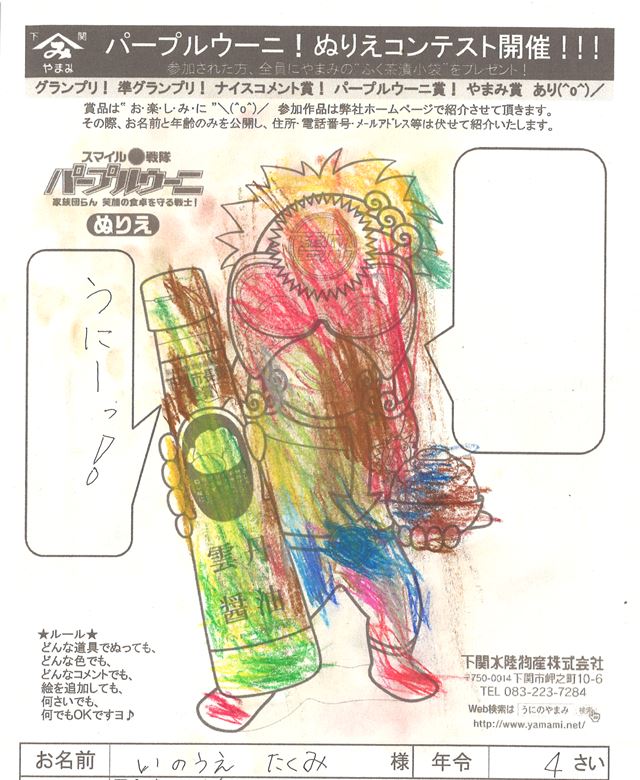 下 関
やまみ
パープルウーニ！ぬりえコンテスト開催！！！
参加された方、全員にやまみの“ふく茶漬小袋”をプレゼント！
グランプリ！ 準グランプリ！ ナイスコメント賞！ パープルウーニ賞！ やまみ賞 あり(^o^)／
賞品は“お・楽・し・み・に ”＼(^o^)／ 参加作品は弊社ホームページで紹介させて頂きます。
その際、お名前と年齢のみを公開し、住所・電話番号・メールアドレス等は伏せて紹介いたします。
スマイル●戦隊
パープルウーニ
家族団らん 笑顔の食卓を守る戦士！
ぬりえ
うにーっ！
雲丹
醤油
★ルール★
どんな道具でぬっても、
どんな色でも、
どんなコメントでも、
絵を追加しても、
何さいでも、
何でもOKですヨ♪
下関水陸物産株式会社
〒750-0014 下関市岬之町10-6
TEL 083-223-7284
Web検索は うにのやまみ 検索
http://www.yamami.net/
お名前 いのうえ たくみ 様 年令 4 さい